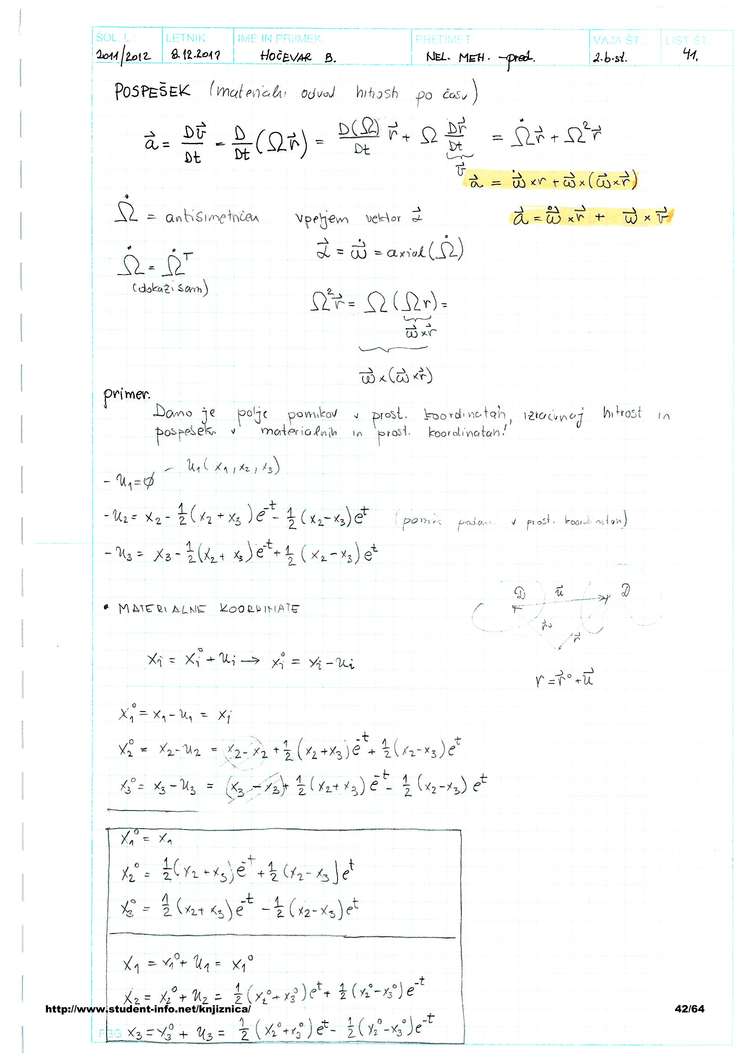 ŠOL. L. LETNIK IME IN PRIIMEK PREDMET VAJA ŠT. LIST ŠT.
2011/2012 8.12.2011 HOČEVAR B. NEL. MEH. - pred. 2.b.st. 41.
POSPEŠEK (materialni odvod hitrosti po času)
a⃗ = Dv⃗/Dt = D/Dt (Ωr⃗) = D(Ω)/Dt r⃗ + Ω Dr⃗/Dt = Ω̇r⃗ + Ω²r⃗
v⃗
a⃗ = ω̇⃗ × r + ω⃗ × (ω⃗ × r⃗)
Ω̇ = antisimetričen vpeljem vektor α⃗
a⃗ = ω̇⃗ × r⃗ + ω⃗ × v⃗
α⃗ = ω̇⃗ = axial(Ω̇)
Ω̇ = Ω̇ᵀ
(dokaži sam)
Ω²r⃗ = Ω(Ωr) =
ω⃗×r⃗
ω⃗×(ω⃗×r⃗)
primer.
Dano je polje pomikov v prost. koordinatah, izračunaj hitrost in
pospešek v materialnih in prost. koordinatah!
- u₁=∅ – u₁(x₁,x₂,x₃)
- u₂ = x₂ - 1/2(x₂+x₃)e⁻ᵗ - 1/2(x₂-x₃)eᵗ (pomik podan v prost. koordinatah)
- u₃ = x₃ - 1/2(x₂+x₃)e⁻ᵗ + 1/2(x₂-x₃)eᵗ
• MATERIALNE KOORDINATE
D u⃗ D
xᵢ = xᵢ° + uᵢ → xᵢ° = xᵢ - uᵢ
r = r⃗° + u⃗
x₁° = x₁ - u₁ = x₁
x₂° = x₂ - u₂ = x₂ - x₂ + 1/2(x₂+x₃)e⁻ᵗ + 1/2(x₂-x₃)eᵗ
x₃° = x₃ - u₃ = (x₃ - x₃) + 1/2(x₂+x₃)e⁻ᵗ - 1/2(x₂-x₃)eᵗ
x₁° = x₁
x₂° = 1/2(x₂+x₃)e⁻ᵗ + 1/2(x₂-x₃)eᵗ
x₃° = 1/2(x₂+x₃)e⁻ᵗ - 1/2(x₂-x₃)eᵗ
x₁ = x₁° + u₁ = x₁°
x₂ = x₂° + u₂ = 1/2(x₂°+x₃°)eᵗ + 1/2(x₂°-x₃°)e⁻ᵗ
http://www.student-info.net/knjiznica/ 42/64
x₃ = x₃° + u₃ = 1/2(x₂°+x₃°)eᵗ - 1/2(x₂°-x₃°)e⁻ᵗ